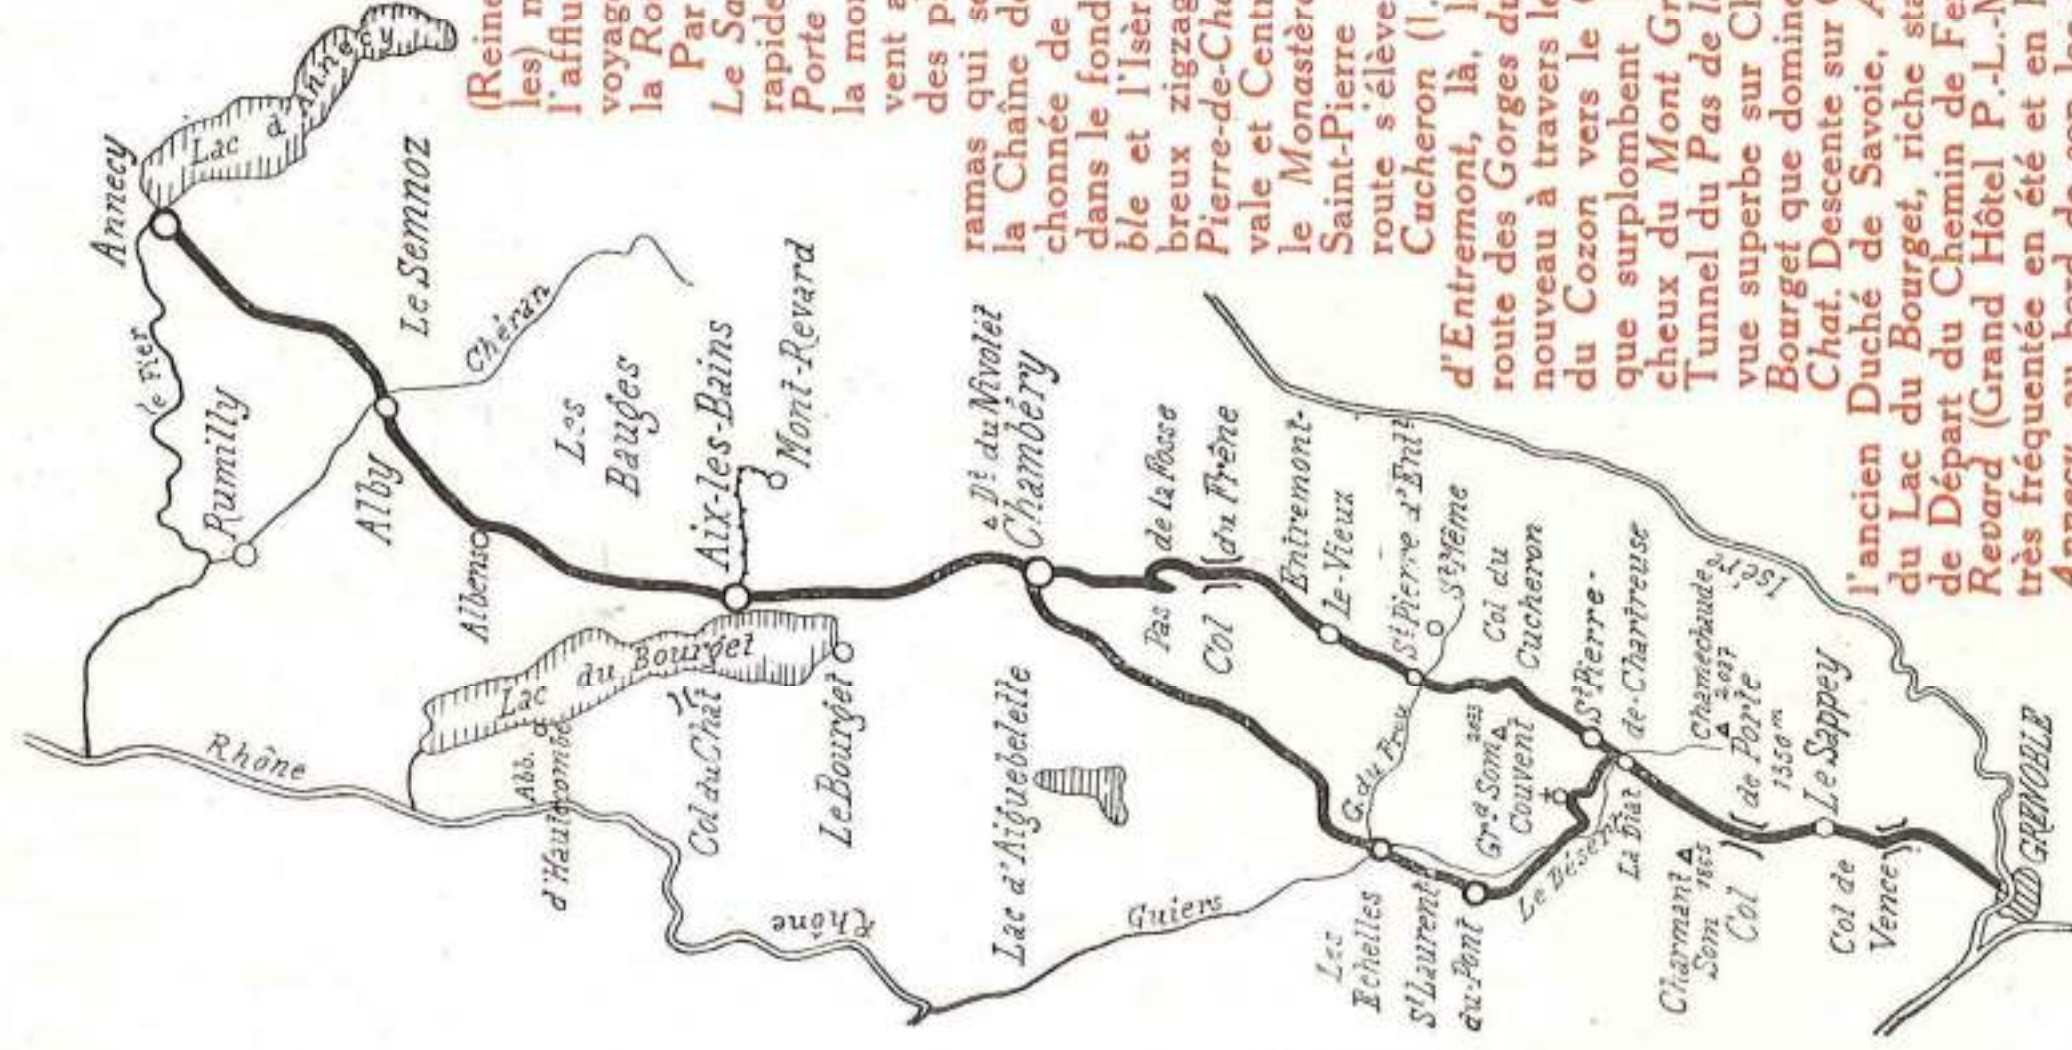 Annecy
Lac
d'Annecy
le Fier
Rumilly
Alby
Le Semnoz
Chéran
Les
Bauges
Albens
Aix-les-Bains
Mont-Revard
Rhône
Lac
du
Bourget
Abb.
d'Hautecombe
Col du Chat
Le Bourget
Dt du Nivolet
Chambéry
Rhône
Lac d'Aiguebelette
Pas de la Fosse
Col du Frêne
Entremont-
le-Vieux
St Pierre d'Entt
Ste Même
Guiers
G. du
Col du
Cucheron
Les
Echelles
St Laurent
du-Pont
Grd Som 2033
Couvent
St Pierre-
de-Chartreuse
Le Désert
La Diat
Chamechaude
2.087
Isère
Charmant
Som 1865
Col de Porte
1350m
Le Sappey
Col de
Vence
GRENOBLE
(Reine
les) n
l'afflu
voyag
la Ro
Par
Le Sa
rapide
Porte
la mo
vent a
des p
ramas qui se
la Chaîne de
chonnée de
dans le fond
ble et l'Isèr
breux zigzag
Pierre-de-Cha
vale et Centr
le Monastère
Saint-Pierre
route s'élève
Cucheron (l.
d'Entremont, là, l
route des Gorges du
nouveau à travers le
du Cozon vers le C
que surplombent
cheux du Mont Gr
Tunnel du Pas de la
vue superbe sur Ch
Bourget que domine
Chat. Descente sur C
l'ancien Duché de Savoie, A
du Lac du Bourget, riche sta
de Départ du Chemin de Fe
Revard (Grand Hôtel P.-L.-M
très fréquentée en été et en h